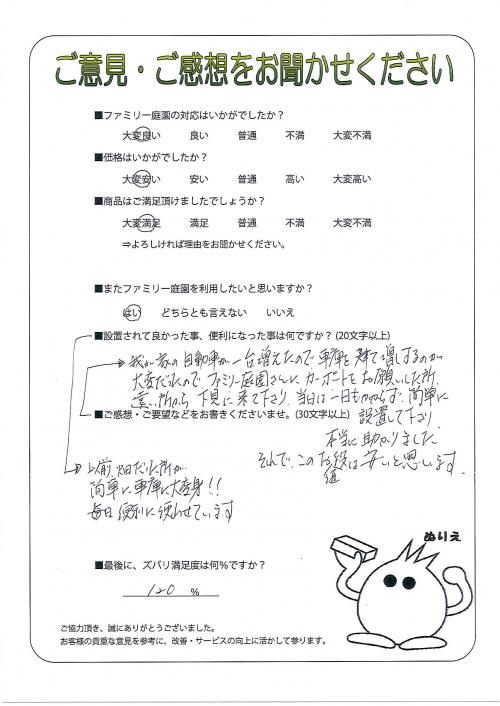 ご意見・ご感想をお聞かせください
■ファミリー庭園の対応はいかがでしたか？
大変良い 良い 普通 不満 大変不満
■価格はいかがでしたか？
大変安い 安い 普通 高い 大変高い
■商品はご満足頂けましたでしょうか？
大変満足 満足 普通 不満 大変不満
⇒よろしければ理由をお聞かせください。
■またファミリー庭園を利用したいと思いますか？
はい どちらとも言えない いいえ
■設置されて良かった事、便利になった事は何ですか？(20文字以上)
我が家の自動車が一台増えたので車庫を建て増しするのが
大変だったので、ファミリー庭園さんにカーポートをお願いした所
遠い所から下見に来て下さり、当日は一日もかからず、簡単に
■ご感想・ご要望などをお書きくださいませ。(30文字以上)
設置して下さり
本当に助かりました
それで、このお値段は安いと思います。
以前、畑だった所が
簡単に車庫に大変身！！
毎日便利に使わせています
ぬりえ
■最後に、ズバリ満足度は何%ですか？
120 %
ご協力頂き、誠にありがとうございました。
お客様の貴重な意見を参考に、改善・サービスの向上に活かして参ります。